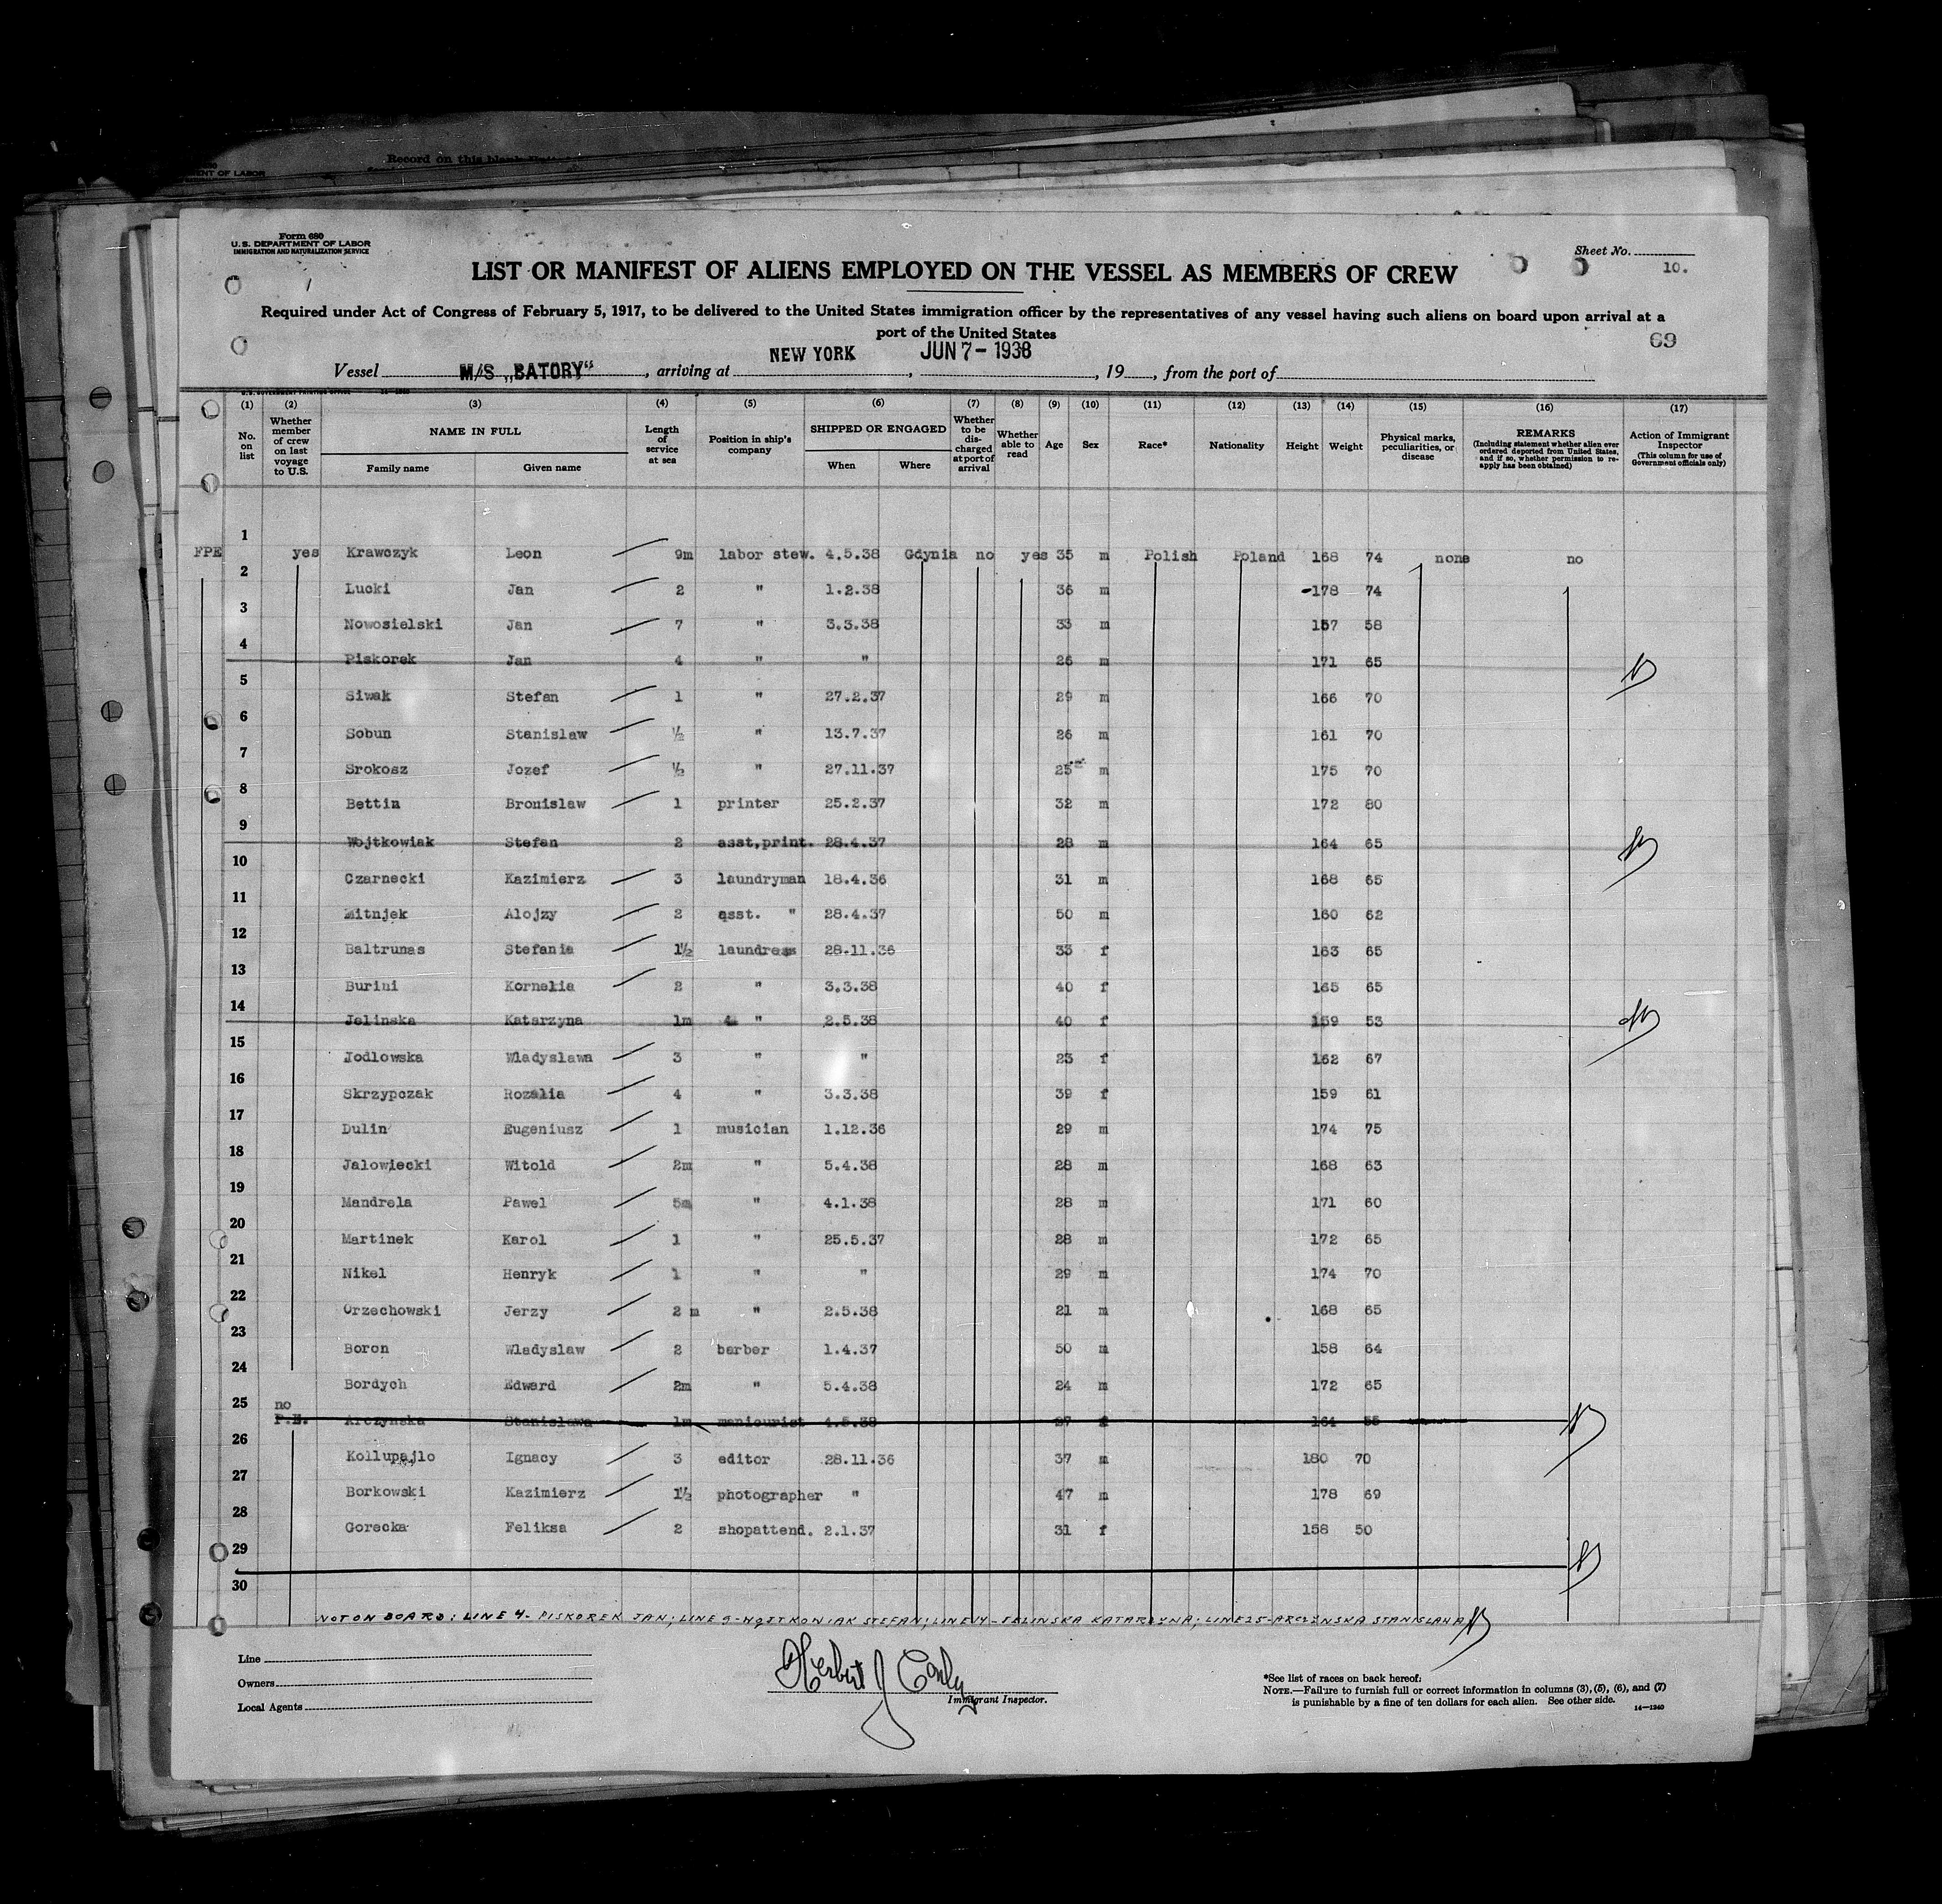 Record on this blank
ENT OF LABOR
Form 680
U. S. DEPARTMENT OF LABOR
IMMIGRATION AND NATURALIZATION SERVICE
Sheet No.
10.
LIST OR MANIFEST OF ALIENS EMPLOYED ON THE VESSEL AS MEMBERS OF CREW
Required under Act of Congress of February 5, 1917, to be delivered to the United States immigration officer by the representatives of any vessel having such aliens on board upon arrival at a
port of the United States
69
Vessel M/S „BATORY“, arriving at NEW YORK, JUN 7 - 1938, 19, from the port of
(1) (2) (3) (4) (5) (6) (7) (8) (9) (10) (11) (12) (13) (14) (15) (16) (17)
No. on list Whether member of crew on last voyage to U.S. NAME IN FULL Family name Given name Length of service at sea Position in ship's company SHIPPED OR ENGAGED When Where Whether to be discharged at port of arrival Whether able to read Age Sex Race* Nationality Height Weight Physical marks, peculiarities, or disease REMARKS (Including statement whether alien ever ordered deported from United States, and if so, whether permission to reapply has been obtained) Action of Immigrant Inspector (This column for use of Government officials only)
1 FPE yes Krawczyk Leon 9m labor stew. 4.5.38 Gdynia no yes 35 m Polish Poland 168 74 none no
2 Lucki Jan 2 " 1.2.38 36 m 178 74
3 Nowosielski Jan 7 " 3.3.38 33 m 157 58
4 Piskorek Jan 4 " " 26 m 171 65
5 Siwak Stefan 1 " 27.2.37 29 m 166 70
6 Sobun Stanislaw ½ " 13.7.37 26 m 161 70
7 Srokosz Jozef ½ " 27.11.37 25 m 175 70
8 Bettin Bronislaw 1 printer 25.2.37 32 m 172 80
9 Wojtkowiak Stefan 2 asst,print. 28.4.37 28 m 164 65
10 Czarnecki Kazimierz 3 laundryman 18.4.36 31 m 168 65
11 Mitnjek Alojzy 2 asst. " 28.4.37 50 m 160 62
12 Baltrunas Stefania 1½ laundress 28.11.36 33 f 163 65
13 Burini Kornelia 2 " 3.3.38 40 f 165 65
14 Jelinska Katarzyna 1m " 2.5.38 40 f 159 53
15 Jodlowska Wladyslawa 3 " " 23 f 162 67
16 Skrzypczak Rozalia 4 " 3.3.38 39 f 159 61
17 Dulin Eugeniusz 1 musician 1.12.36 29 m 174 75
18 Jalowiecki Witold 2m " 5.4.38 28 m 168 63
19 Mandrela Pawel 5m " 4.1.38 28 m 171 60
20 Martinek Karol 1 " 25.5.37 28 m 172 65
21 Nikel Henryk 1 " " 29 m 174 70
22 Orzechowski Jerzy 2 m " 2.5.38 21 m 168 65
23 Boron Wladyslaw 2 barber 1.4.37 50 m 158 64
24 Bordych Edward 2m " 5.4.38 24 m 172 65
25 no P.E. Arczynska Stanislawa 1m manicurist 4.5.38 27 f 164 55
26 Kollupajlo Ignacy 3 editor 28.11.36 37 m 180 70
27 Borkowski Kazimierz 1½ photographer " 47 m 178 69
28 Gorecka Feliksa 2 shopattend. 2.1.37 31 f 158 50
29
30
NOT ON BOARD: LINE 4- PISKOREK JAN; LINE 9-WOJTKOWIAK STEFAN; LINE 14-JELINSKA KATARZYNA; LINE 25-ARCZYNSKA STANISLAWA
Line
Owners
Local Agents
Herbert J Conly
Immigrant Inspector.
*See list of races on back hereof.
NOTE.—Failure to furnish full or correct information in columns (3), (5), (6), and (7)
is punishable by a fine of ten dollars for each alien. See other side.
14—1240